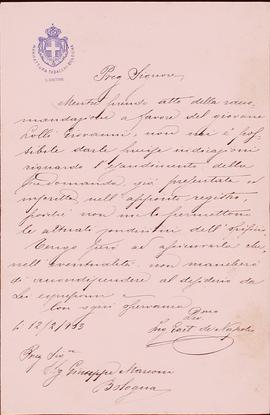 MANIFATTURA TABACCHI BOLOGNA
IL DIRETTORE
Preg. Signore
Mentre prendo atto della racco-
mandazione a favore del giovane
Lolli Giovanni, non mi è pos-
sibile darle precise indicazioni
riguardo l'esaudimento della
sua domanda, già presentata ed
inserita nell'apposito registro,
perchè non me lo permettono
le attuali condizioni dell'opificio.
Tengo però ad assicurarla che,
nell'eventualità, non mancherò
di accondiscendere al desiderio da
Lei espressomi.
Con ogni osservanza
Dev.
li 12/2/933
Ing. Gast. de Napoli
Preg. Sig.
Sig. Giuseppe Marconi
Bologna